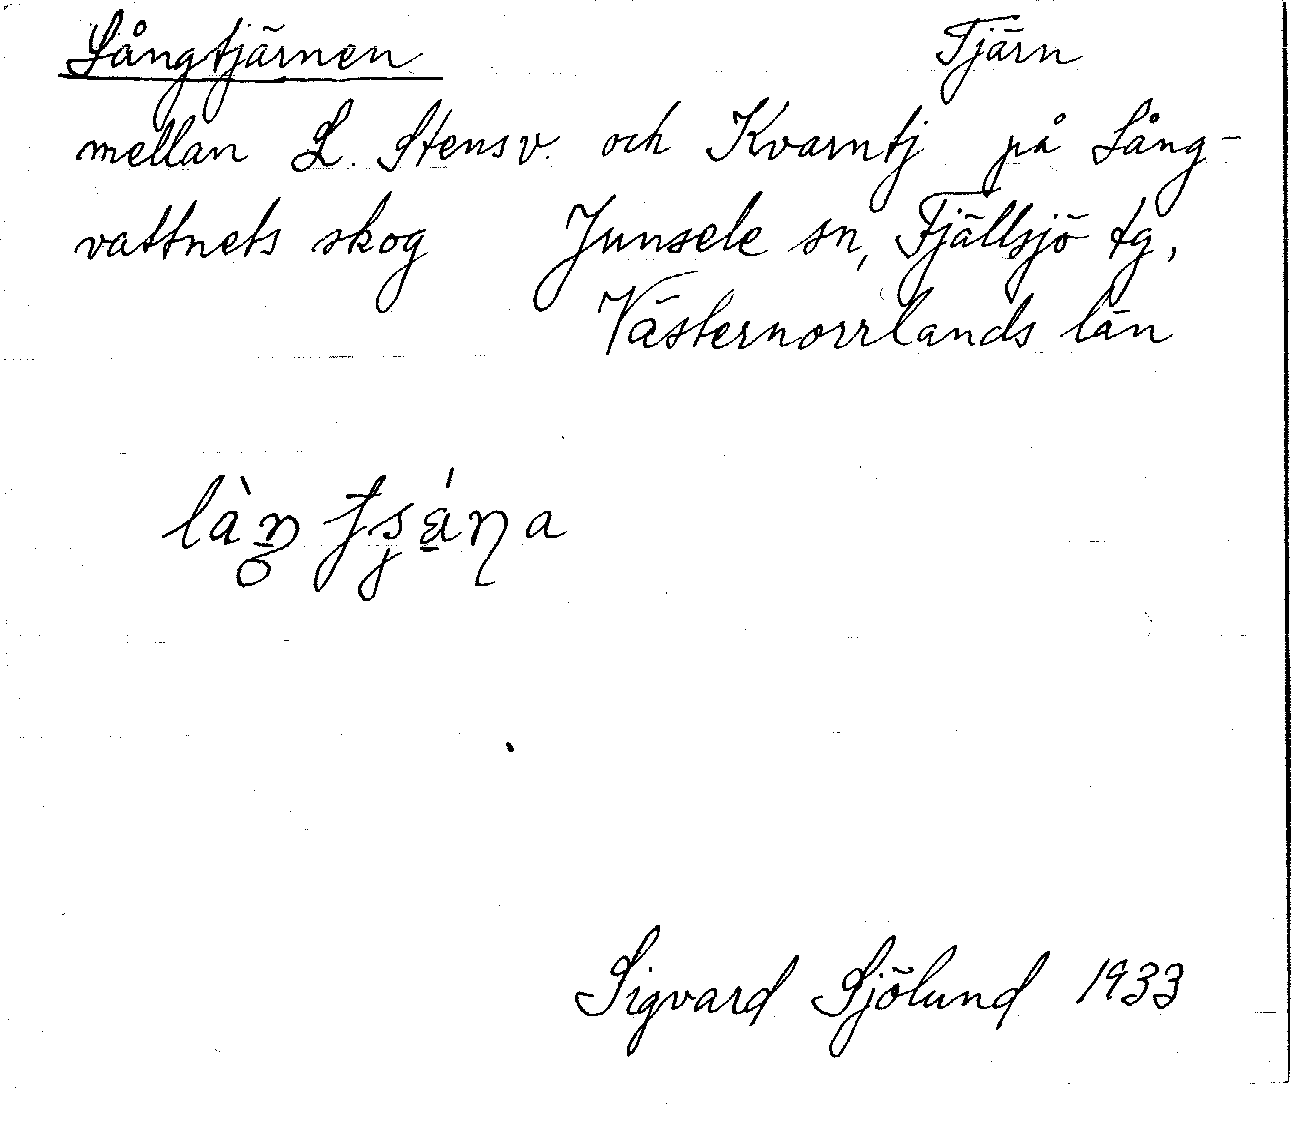 Långtjärnen Tjärn
mellan L. Stensv. och Kvarntj på Lång-
vattnets skog Junsele sn, Fjällsjö tg,
Västernorrlands län
Sigvard Sjölund 1933